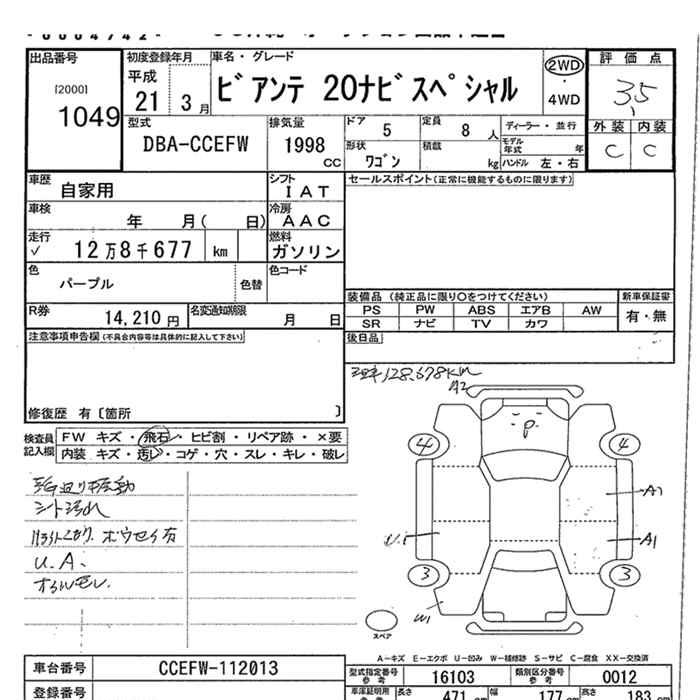 出品番号
[2000]
1049
初度登録年月
平成
21 3 月
車名・グレード
ビアンテ 20ナビスペシャル
2WD
4WD
評価点
3.5
外装 内装
C C
型式
DBA-CCEFW
排気量
1998
CC
ドア 5
定員 8 人
形状 ワゴン
積載 kg
ディーラー・並行
モデル年式 年
ハンドル 左・右
車歴 自家用
シフト IAT
セールスポイント(正常に機能するものに限ります)
車検 年 月( 日)
冷房 AAC
走行 12万8千677 km
燃料 ガソリン
色 パープル 色替
色コード
装備品(純正品に限り○をつけてください)
新車保証書
PS PW ABS エアB AW
有・無
SR ナビ TV カワ
R券 14,210 円
名変通知期限 月 日
後日品
注意事項申告欄(不具合内容等は具体的に記入して下さい)
128,678Km
修復歴 有〔箇所 〕
検査員記入欄
FW キズ・飛石・ヒビ割・リペア跡・×要
内装 キズ・汚レ・コゲ・穴・スレ・キレ・破レ
シート汚れ
U.A.
A2
P
4 4
A1
A1
3 3
W1
スペア
A-キズ E-エクボ U-凹み W-補修跡 S-サビ C-腐食 XX-交換済
車台番号 CCEFW-112013
型式指定番号 参考 16103
類別区分番号 参考 0012
登録番号
車庫証明用 参考
長さ 471 cm
幅 177 cm
高さ 183 cm